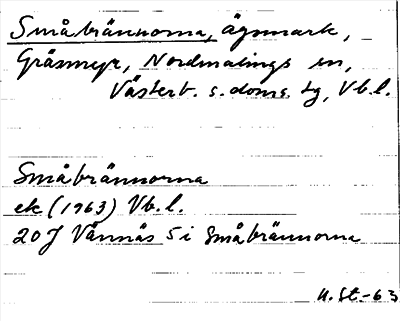 Småbrännorna, ägomark,
Gräsmyr, Nordmalings sn,
Västerb. s. doms. tg, Vb.l.
Småbrännorna
ek (1963) Vb.l.
20J Vännäs 5i Småbrännorna
U.St.-63